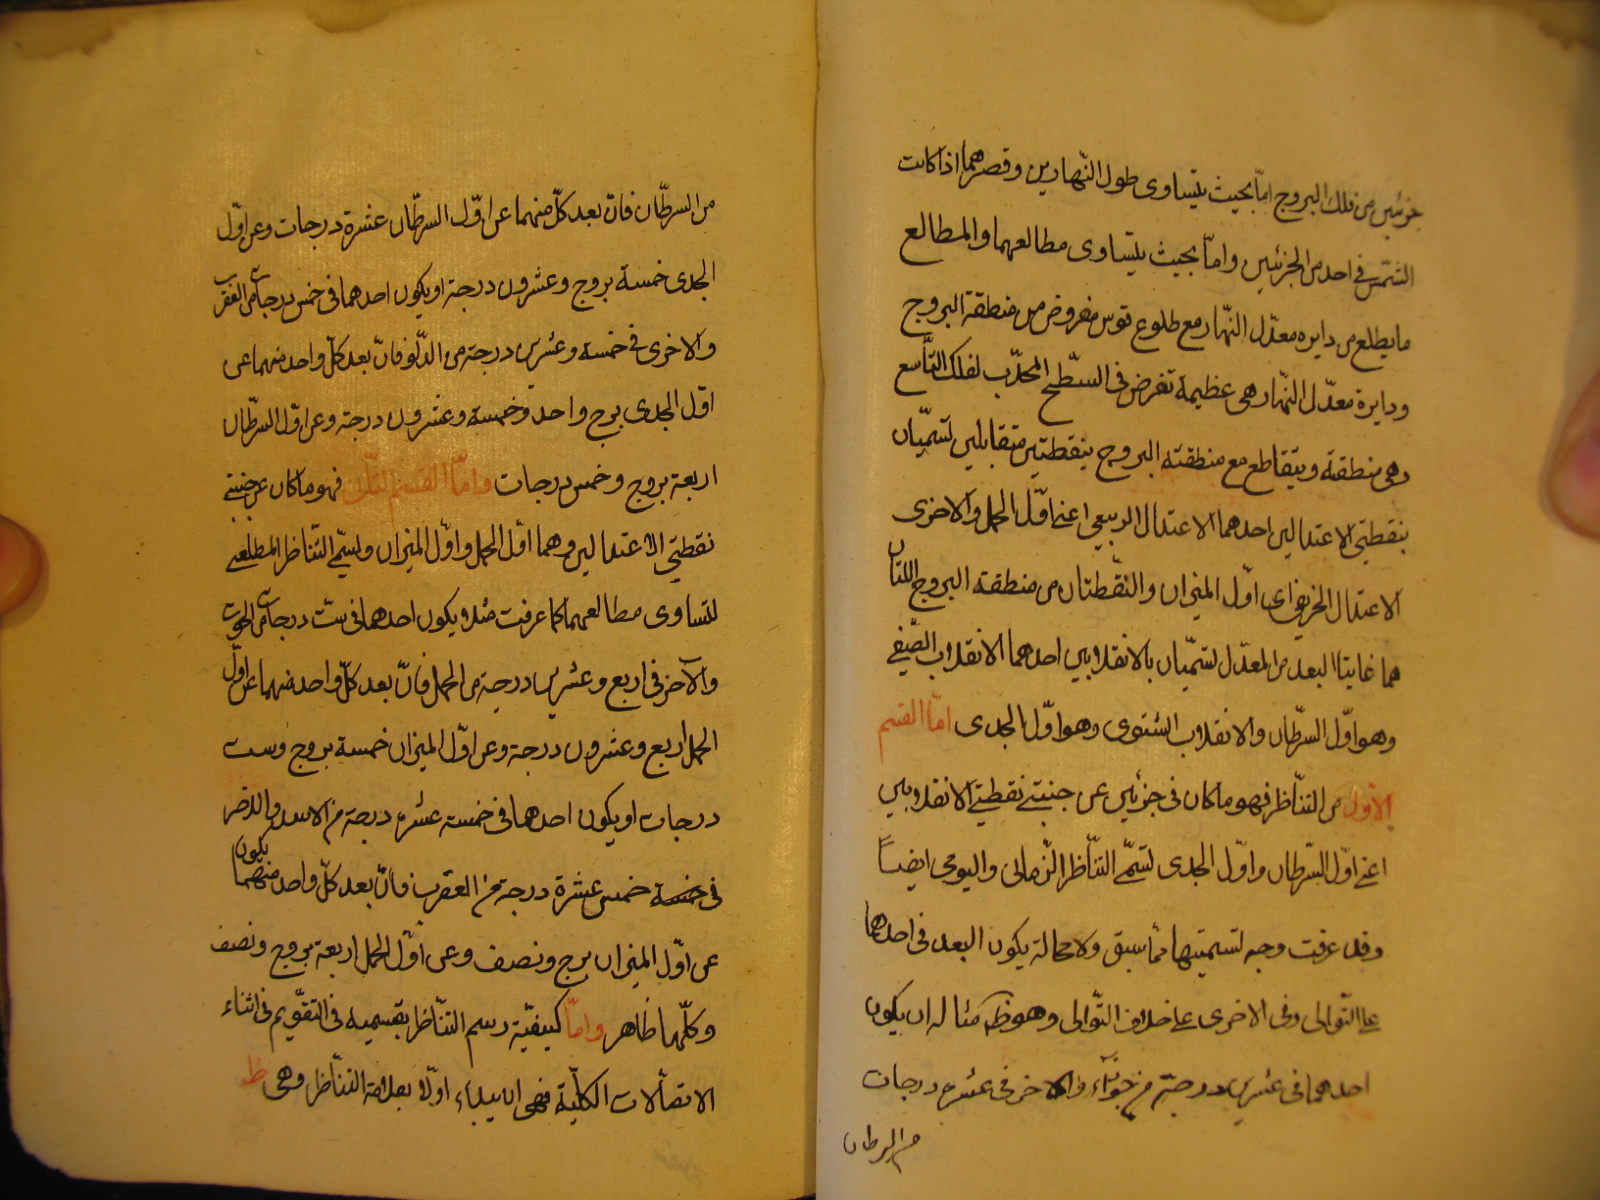 جزئين من فلك البروج امّا بحيث يتساوى طول النّهارين وقصرهما اذا كانت
الشّمس فى احد من الجزئين وامّا بحيث يتساوى مطالعهما والمطالع
ما يطلع من دايره معدّل النّهار مع طلوع قوس مفروض من منطقة البروج
ودايرة معدّل النّهار هى عظيمة تفرض فى السّطح المحدّب لفلك التّاسع
وهى منطقة ويتقاطع مع منطقته البروج بنقطتين متقابلين تسمّيان
بنقطتى الاعتدالين احدهما الاعتدال الربيعى اعنى اوّل الحمل والاخرى
الاعتدال الخريفى اى اوّل الميزان والنّقطتان من منطقة البروج اللتان
هما غايتا البعد من المعدّل تسمّيان بالانقلابين احدهما الانقلاب الصّيفى
وهو اوّل السّرطان والانقلاب الشتوى وهو اوّل الجدى امّا القسم
الاوّل من التناظر فهو ما كان فى جزئين عن جنبتى نقطتى الانقلابين
اعنى اوّل السّرطان واوّل الجدى تسمّى التناظر الزّمانى واليومى ايضاً
وقد عرفت وجه تسميتهما ممّا سبق ولا محالة يكون البعد فى احدهما
على التّوالى وفى الاخرى على خلاف التّوالى وهو ظ مثاله ان يكون
احدهما فى عشرين درجة من جوزاء والاخر فى عشر درجات
من السرطان
من السرطّان فانّ بعد كلّ منهما عن اوّل السرطّان عشرة درجات وعن اوّل
الجدى خمسة بروج وعشرون درجة او يكون احدهما فى خمس درجات من العقرب
والاخرى فى خمسة وعشرين درجة من الدّلو فانّ بعد كلّ واحد منهما عن
اوّل الجدى برج واحد وخمسة وعشرون درجة وعن اوّل السرطّان
اربعة بروج وخمس درجات وامّا القسم الثانى فهو ما كان عن جنبتى
نقطتى الاعتدالين وهما اوّل الحمل واوّل الميزان وتسمّى التّناظر المطلعى
لتساوى مطالعهما كما عرفت مثلا يكون احدهما فى ستّ درجات من الحوت
والاخر فى اربع وعشرين درجة من الحمل فانّ بعد كلّ واحد منهما عن اوّل
الحمل اربع وعشرون درجة وعن اوّل الميزان خمسة بروج وست
درجات او يكون احدهما فى خمسة عشر درجة من الاسد والاخر
فى خمسة خمس عشرة درجة من العقرب فانّ بعد كلّ واحد منهما يكون
عن اوّل الميزان برج ونصف وعن اوّل الحمل اربعة بروج ونصف
وكلّهما ظاهر وامّا كيفيّة رسم التناظر بقسميه فى التقويم فى اثناء
الاتصالات الكلّية فهى ان يبداء اوّلا بعلامة التناظر وهى ظ